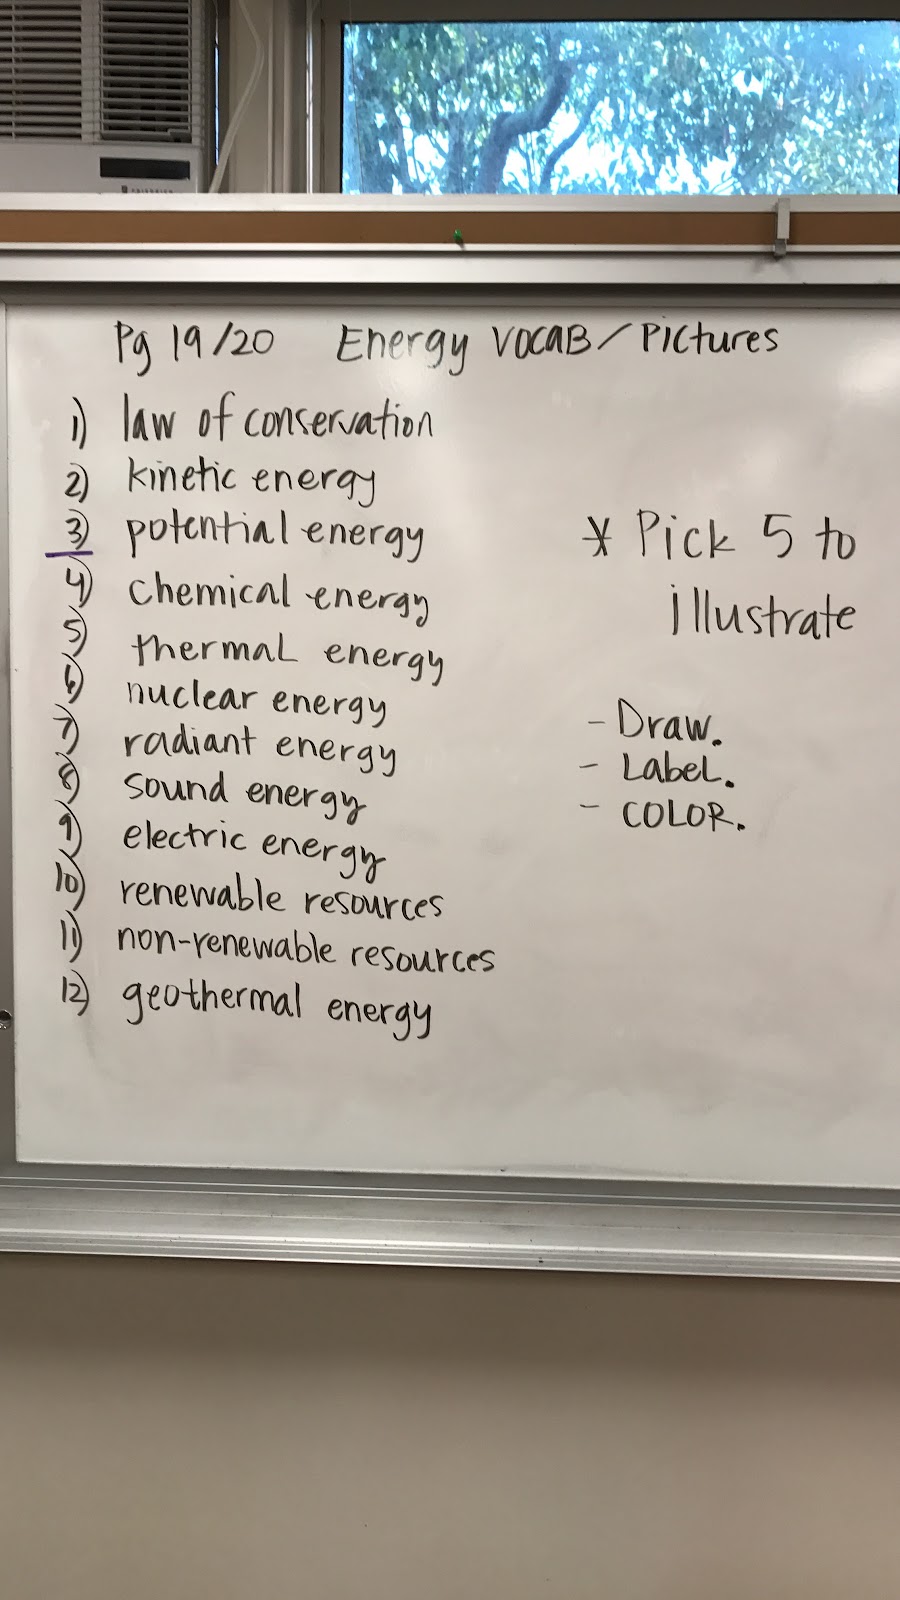 FRIEDRICH
Pg 19/20 Energy VOCAB/Pictures
1) law of conservation
2) kinetic energy
3) potential energy
4) chemical energy
5) thermal energy
6) nuclear energy
7) radiant energy
8) sound energy
9) electric energy
10) renewable resources
11) non-renewable resources
12) geothermal energy
* Pick 5 to
illustrate
- Draw.
- Label.
- COLOR.